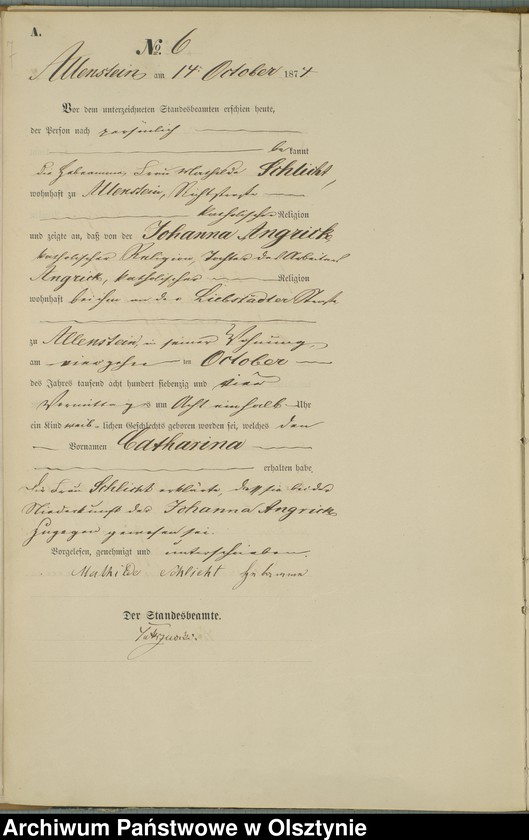 A.
No. 6
Allenstein am 14 October 1874
Vor dem unterzeichneten Standesbeamten erschien heute,
der Person nach persönlich
bekannt
die Hebamme, Frau Mathilde Schlicht,
wohnhaft zu Allenstein, Richtstraße
katholischer Religion
und zeigte an, daß von der Johanna Angrick,
katholischer Religion, Tochter des Arbeiters
Angrick, katholischer Religion
wohnhaft bei ihm an der Liebstädter Straße
zu Allenstein, in seiner Wohnung
am vierzehn ten October
des Jahres tausend acht hundert siebenzig und vier
Vormittags um Acht einhalb Uhr
ein Kind weib-lichen Geschlechts geboren worden sei, welches den
Vornamen Catharina
erhalten habe
Die Frau Schlicht erklärte, daß sie bei der
Niederkunft der Johanna Angrick
zugegen gewesen sei.
Vorgelesen, genehmigt und unterschrieben.
Mathilde Schlicht Hebamme
Der Standesbeamte.
Archiwum Państwowe w Olsztynie